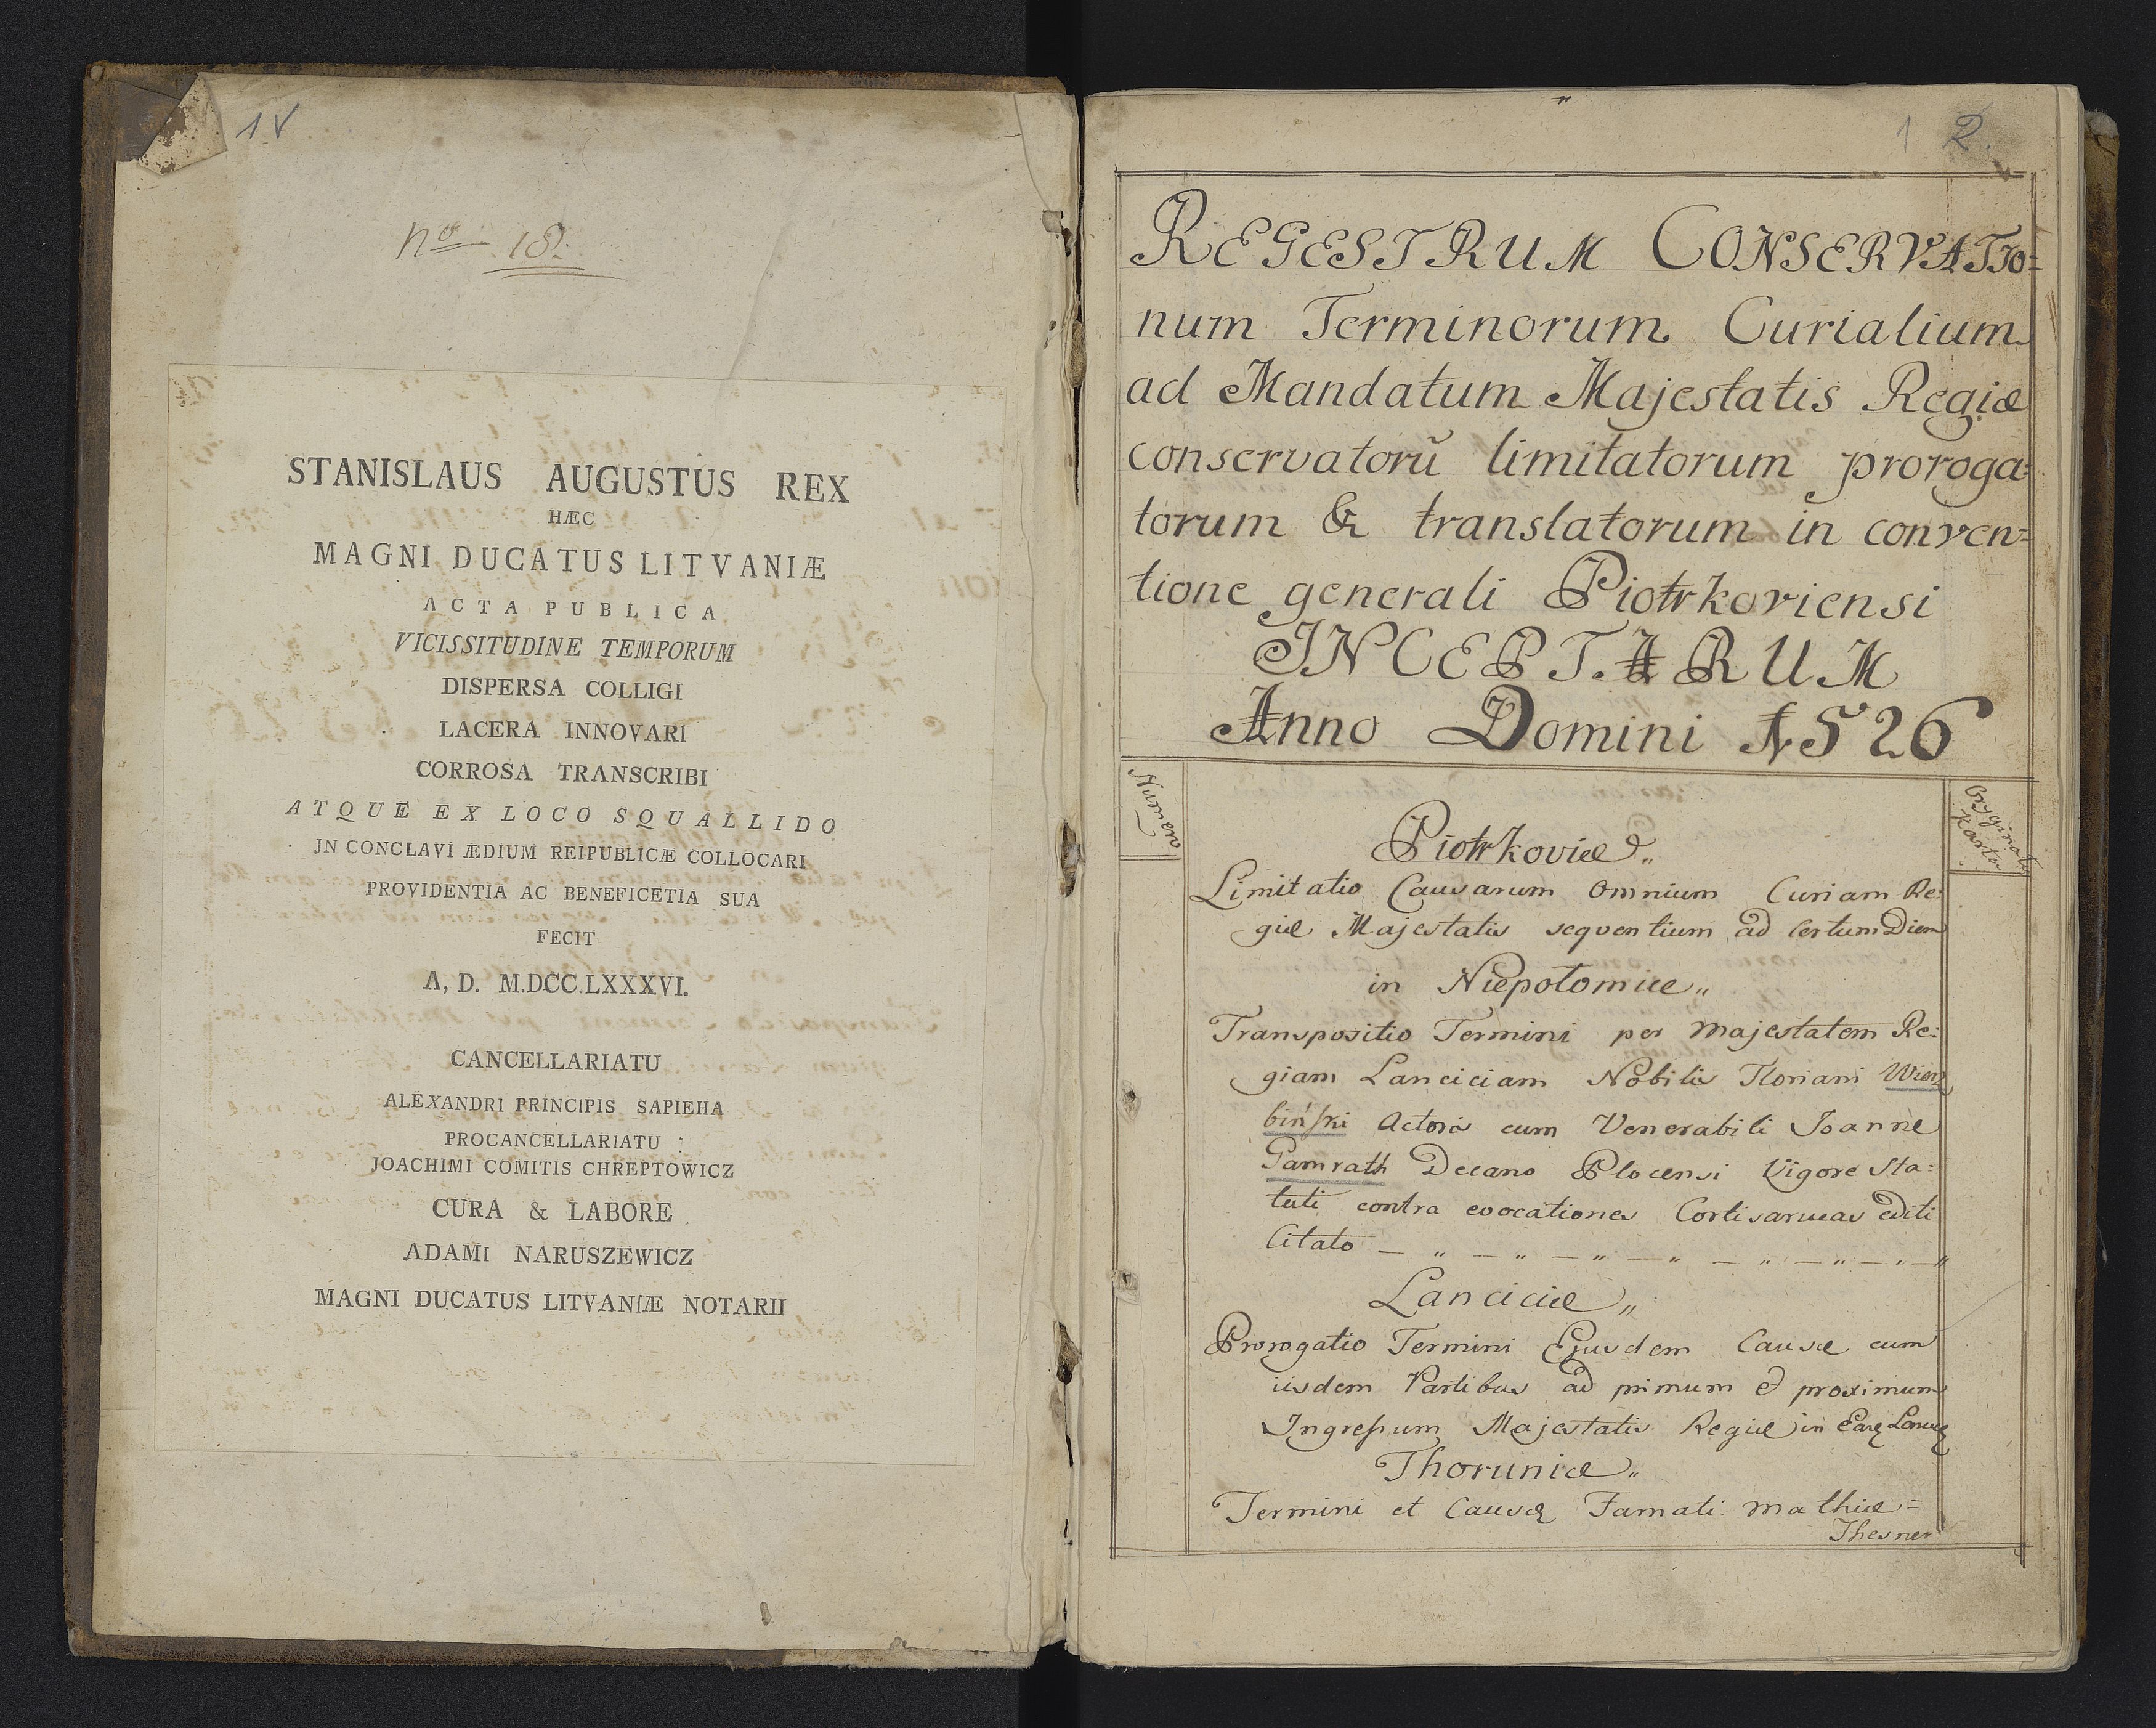 1V
no 18.
STANISLAUS AUGUSTUS REX
HÆC
MAGNI DUCATUS LITVANIÆ
ACTA PUBLICA
VICISSITUDINE TEMPORUM
DISPERSA COLLIGI
LACERA INNOVARI
CORROSA TRANSCRIBI
ATQUE EX LOCO SQUALLIDO
JN CONCLAVI ÆDIUM REIPUBLICÆ COLLOCARI
PROVIDENTIA AC BENEFICETIA SUA
FECIT
A, D. M.DCC.LXXXVI.
CANCELLARIATU
ALEXANDRI PRINCIPIS SAPIEHA
PROCANCELLARIATU
JOACHIMI COMITIS CHREPTOWICZ
CURA & LABORE
ADAMI NARUSZEWICZ
MAGNI DUCATUS LITVANIÆ NOTARII
1 2.
REGESTRUM CONSERVATIO=
num Terminorum Curialium
ad Mandatum Majestatis Regiæ
conservatorũ limitatorum proroga=
torum & translatorum in conven=
tione generali Piotrkoviensi
INCEPTARUM
Anno Domini 1526
Numero
Oryginału Karta
Piotrkoviæ„
Limitatio Causarum Omnium Curiam Re:
giæ Majestatis sequentium ad Certum Diem
in Niepołomice„
Transpositio Termini per Majestatem Re:
giam Lanciciam Nobilis Floriani Wierz
bińſki Actoris cum Venerabili Joanne
Gamrath Decano Plocensi Vigore Sta:
tuti contra evocationes editi
Citato — „ — „ — „ — „ — „ — „ — „ — „
Lanciciæ„
Prorogatio Termini Ejusdem Causæ cum
iisdem Partibus ad primum & proximum
Ingreſsum Majestatis Regiæ in
Thoruniæ„
Termini et Causæ Famati Mathiæ =
Thesner